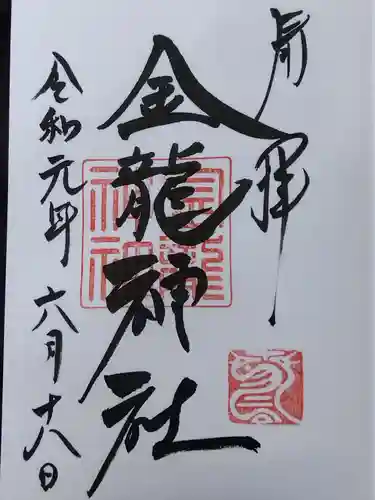 奉拝
金龍神社
令和元年 六月十八日